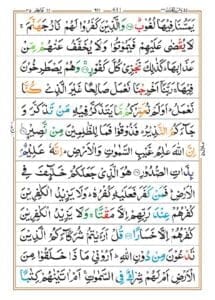 يَمَسُّنَا فِيْهَا لُغُوْبٌ ۝ وَالَّذِيْنَ كَفَرُوْا لَهُمْ نَارُ جَهَنَّمَ ۚ
لَا يُقْضٰى عَلَيْهِمْ فَيَمُوْتُوْا وَلَا يُخَفَّفُ عَنْهُمْ مِّنْ
عَذَابِهَا ؕ كَذٰلِكَ نَجْزِىْ كُلَّ كَفُوْرٍ ۝ وَهُمْ يَصْطَرِخُوْنَ
فِيْهَا ۚ رَبَّنَاۤ اَخْرِجْنَا نَعْمَلْ صَالِحًا غَيْرَ الَّذِىْ كُنَّا
نَعْمَلُ ؕ اَوَلَمْ نُعَمِّرْكُمْ مَّا يَتَذَكَّرُ فِيْهِ مَنْ تَذَكَّرَ وَ
جَآءَكُمُ النَّذِيْرُ ؕ فَذُوْقُوْا فَمَا لِلظّٰلِمِيْنَ مِنْ نَّصِيْرٍ ۝
اِنَّ اللّٰهَ عٰلِمُ غَيْبِ السَّمٰوٰتِ وَالْاَرْضِ ؕ اِنَّهٗ عَلِيْمٌۢ
بِذَاتِ الصُّدُوْرِ ۝ هُوَ الَّذِىْ جَعَلَكُمْ خَلٰٓئِفَ فِى
الْاَرْضِ ؕ فَمَنْ كَفَرَ فَعَلَيْهِ كُفْرُهٗ ؕ وَلَا يَزِيْدُ الْكٰفِرِيْنَ
كُفْرُهُمْ عِنْدَ رَبِّهِمْ اِلَّا مَقْتًا ۚ وَلَا يَزِيْدُ الْكٰفِرِيْنَ
كُفْرُهُمْ اِلَّا خَسَارًا ۝ قُلْ اَرَءَيْتُمْ شُرَكَآءَكُمُ الَّذِيْنَ
تَدْعُوْنَ مِنْ دُوْنِ اللّٰهِ ؕ اَرُوْنِىْ مَاذَا خَلَقُوْا مِنَ
الْاَرْضِ اَمْ لَهُمْ شِرْكٌ فِى السَّمٰوٰتِ ۚ اَمْ اٰتَيْنٰهُمْ كِتٰبًا